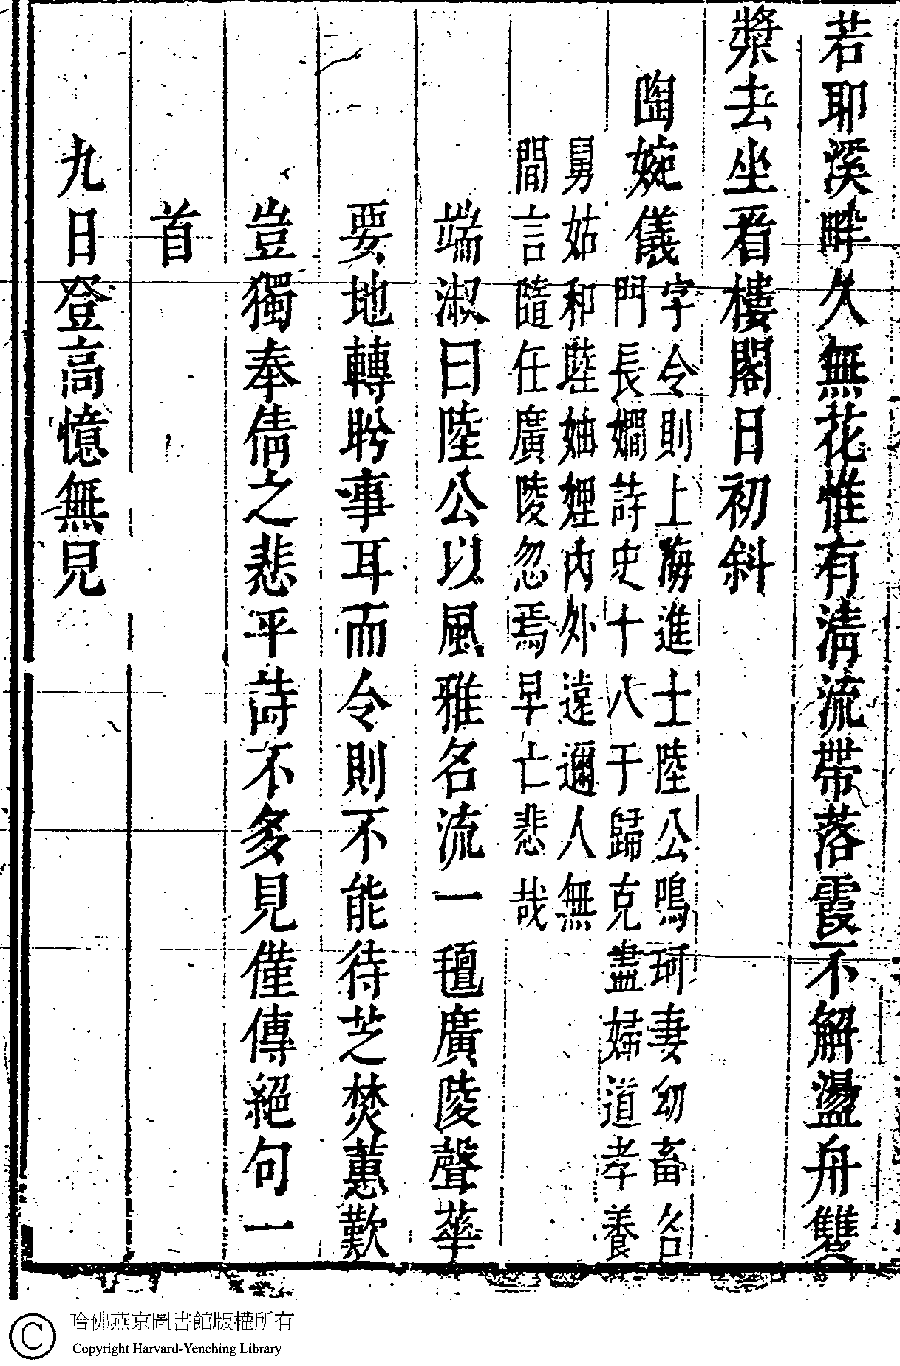 若耶溪畔久無花惟有清流帶落霞不解盪舟雙
槳去坐看樓閣日初斜
陶婉儀
字令則上海進士陸公鳴珂妻幼畜名
門長嫻詩史十八于歸克盡婦道孝養
舅姑和睦妯娌內外遠邇人無
間言隨任廣陵忽焉早亡悲哉
端淑曰陸公以風雅名流一氊廣陵聲華
要地轉盻事耳而令則不能待芝焚蕙歎
豈獨奉倩之悲乎詩不多見僅傳絕句一
首
九日登高憶無兄
哈佛燕京圖書館版權所有
Copyright Harvard-Yenching Library